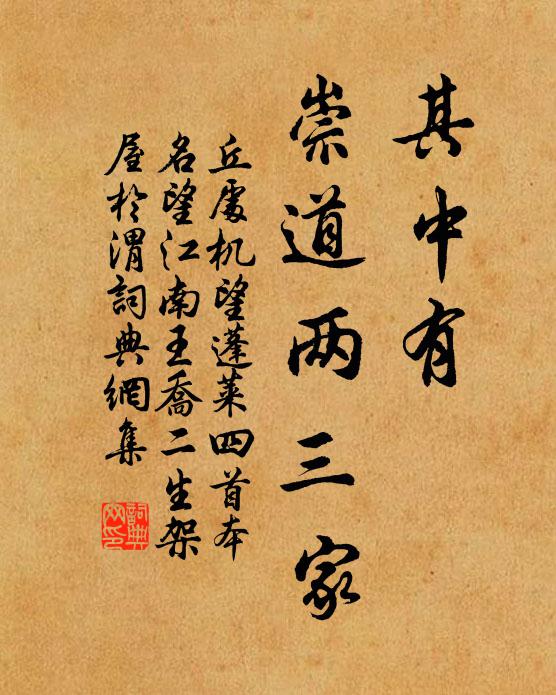 其中有
崇道两三家
丘處机望蓬莱四首本
名望江南王喬二生架
屋於渭詞典網集
詞典
网印